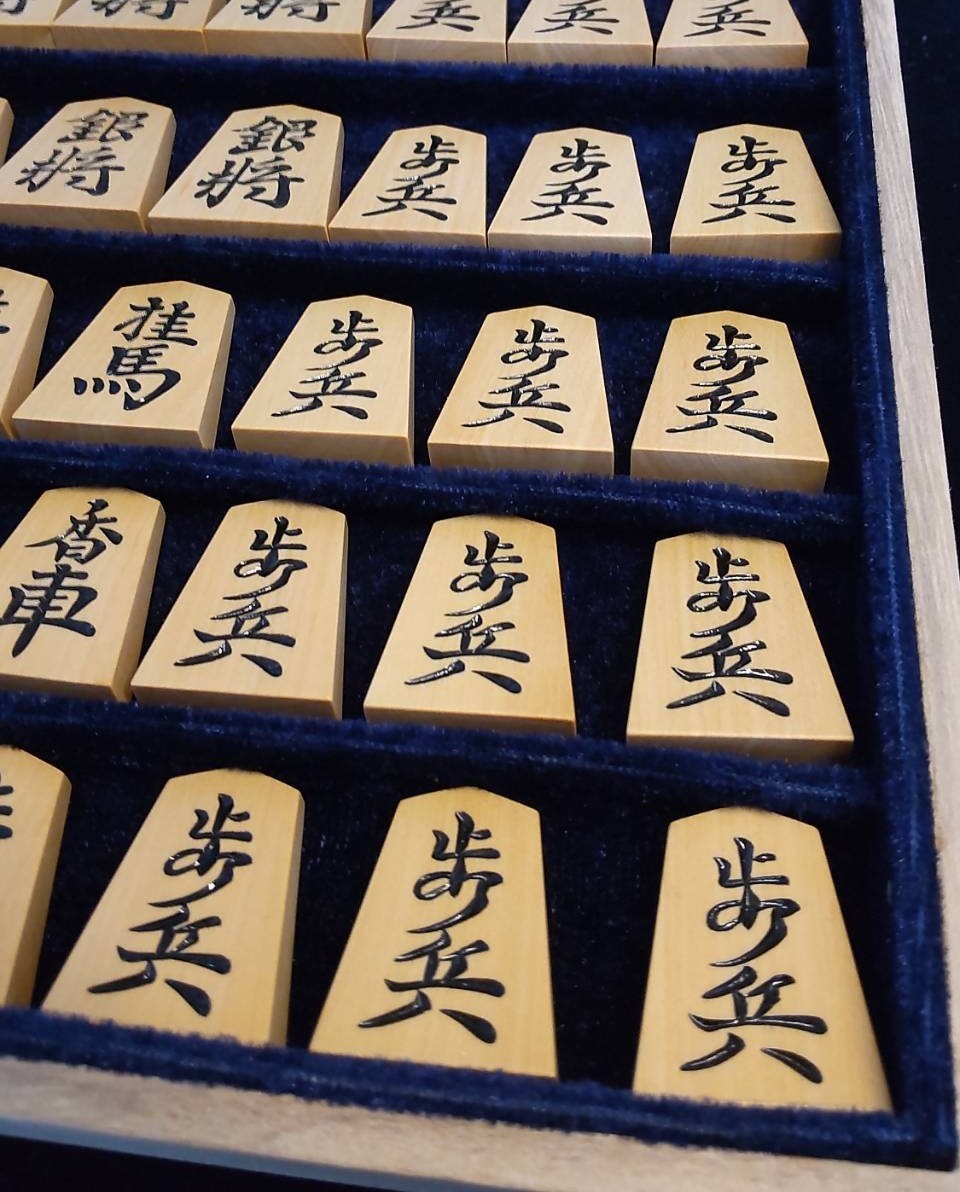 将 将 将 歩兵 歩兵 歩兵
銀将 銀将 歩兵 歩兵 歩兵
桂馬 歩兵 歩兵 歩兵
香車 歩兵 歩兵 歩兵
歩兵 歩兵 歩兵